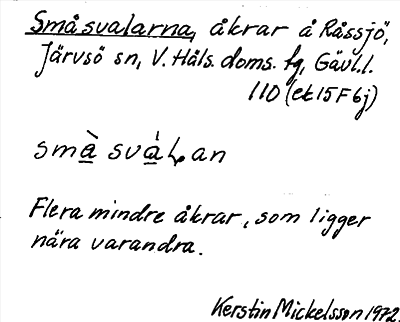 Småsvalarna, åkrar å Råssjö,
Järvsö sn, V. Häls. doms. fg, Gävl.l.
110 (ek 15 F 6j)
smà̲ svá̲ḷan
Flera mindre åkrar, som ligger
nära varandra.
Kerstin Mickelsson 1972.